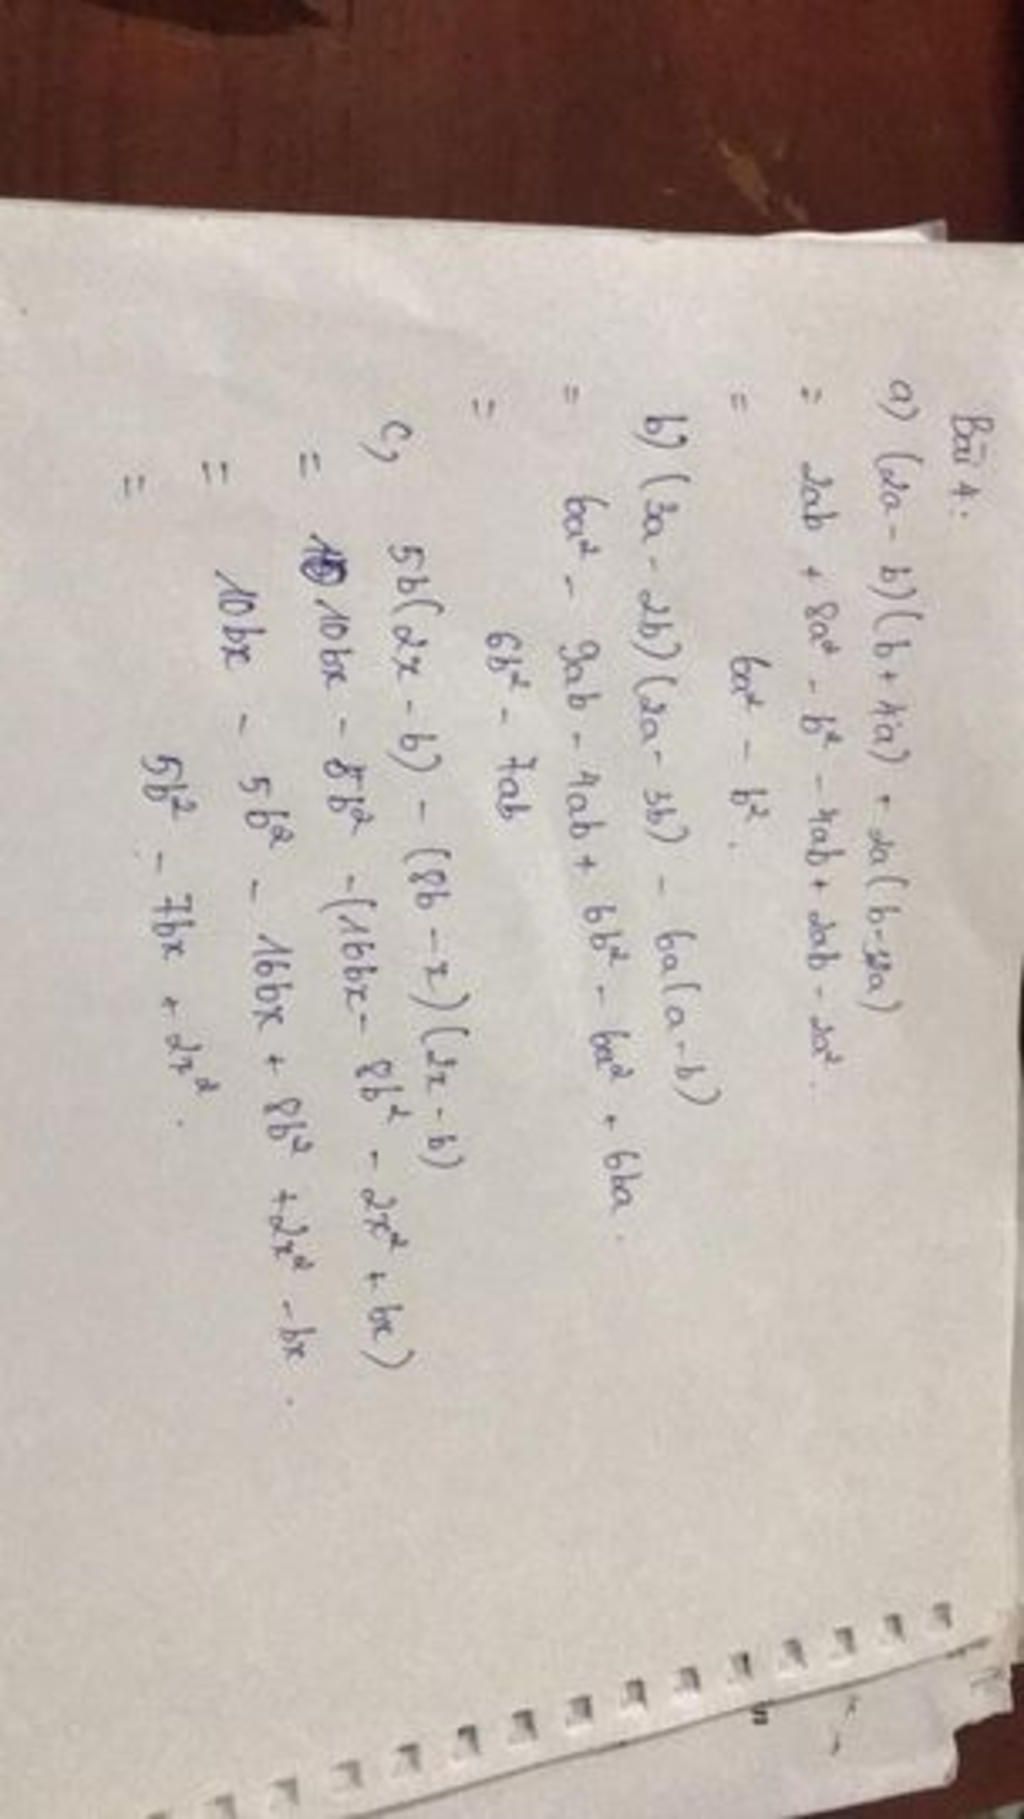 Bài 4:
a) (2a - b)(b + 4a) + 2a(b - a)
= 2ab + 8a² - b² - 4ab + 2ab - 2a².
= 6a² - b².
b) (3a - 2b)(2a - 3b) - 6a(a - b)
= 6a² - 9ab - 4ab + 6b² - 6a² + 6ba.
= 6b² - 7ab
c, 5b(2x - b) - (8b - x)(2x - b)
= 10bx - 5b² - (16bx - 8b² - 2x² + bx)
= 10bx - 5b² - 16bx + 8b² + 2x² - bx.
= 5b² - 7bx + 2x².